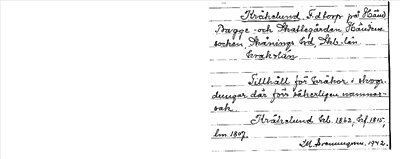 Kråkelund F.d torp på Händ
Bagge- och Skattegården Händene
socken Skånings hd, Skb. län
kråkelun
Tillhåll för kråkor i skogs-
dungar där förr säkerligen namnes-
sak
Kråkelund Kb. 1863, hf. 1815,
lm. 1807.
1942.